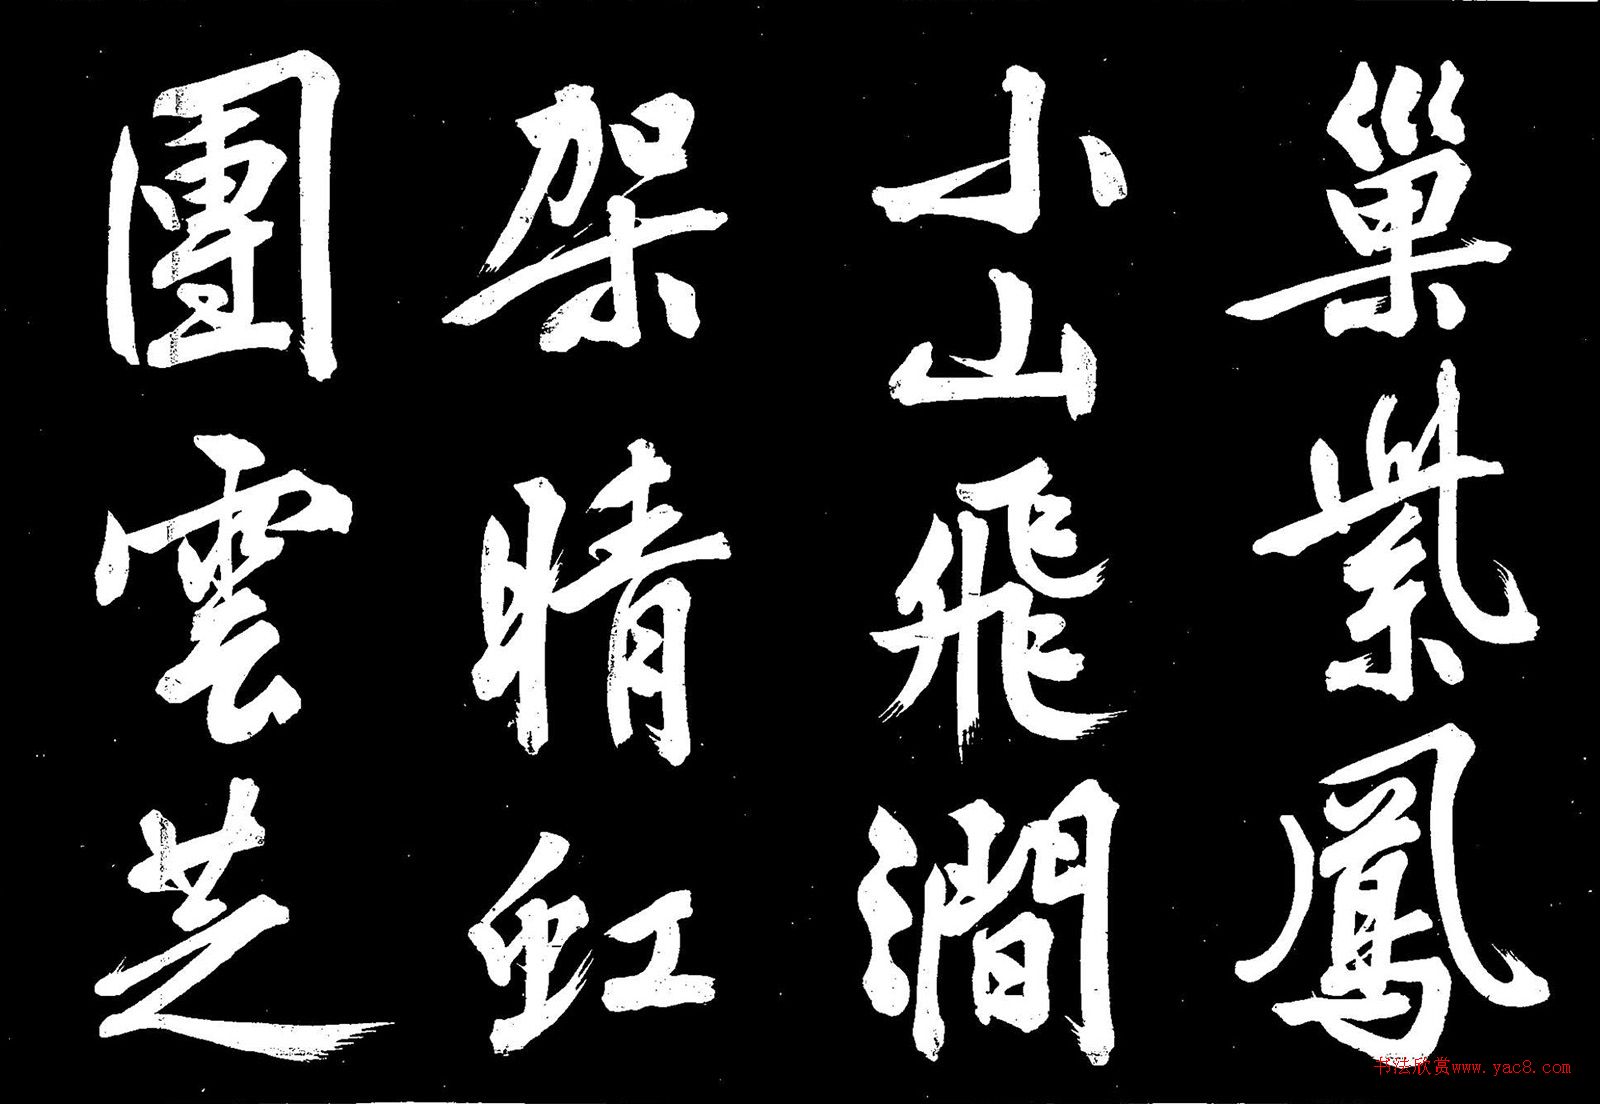 巢紫鳳
小山飛澗
架晴虹
團雲芝
书法欣赏www.yac8.com